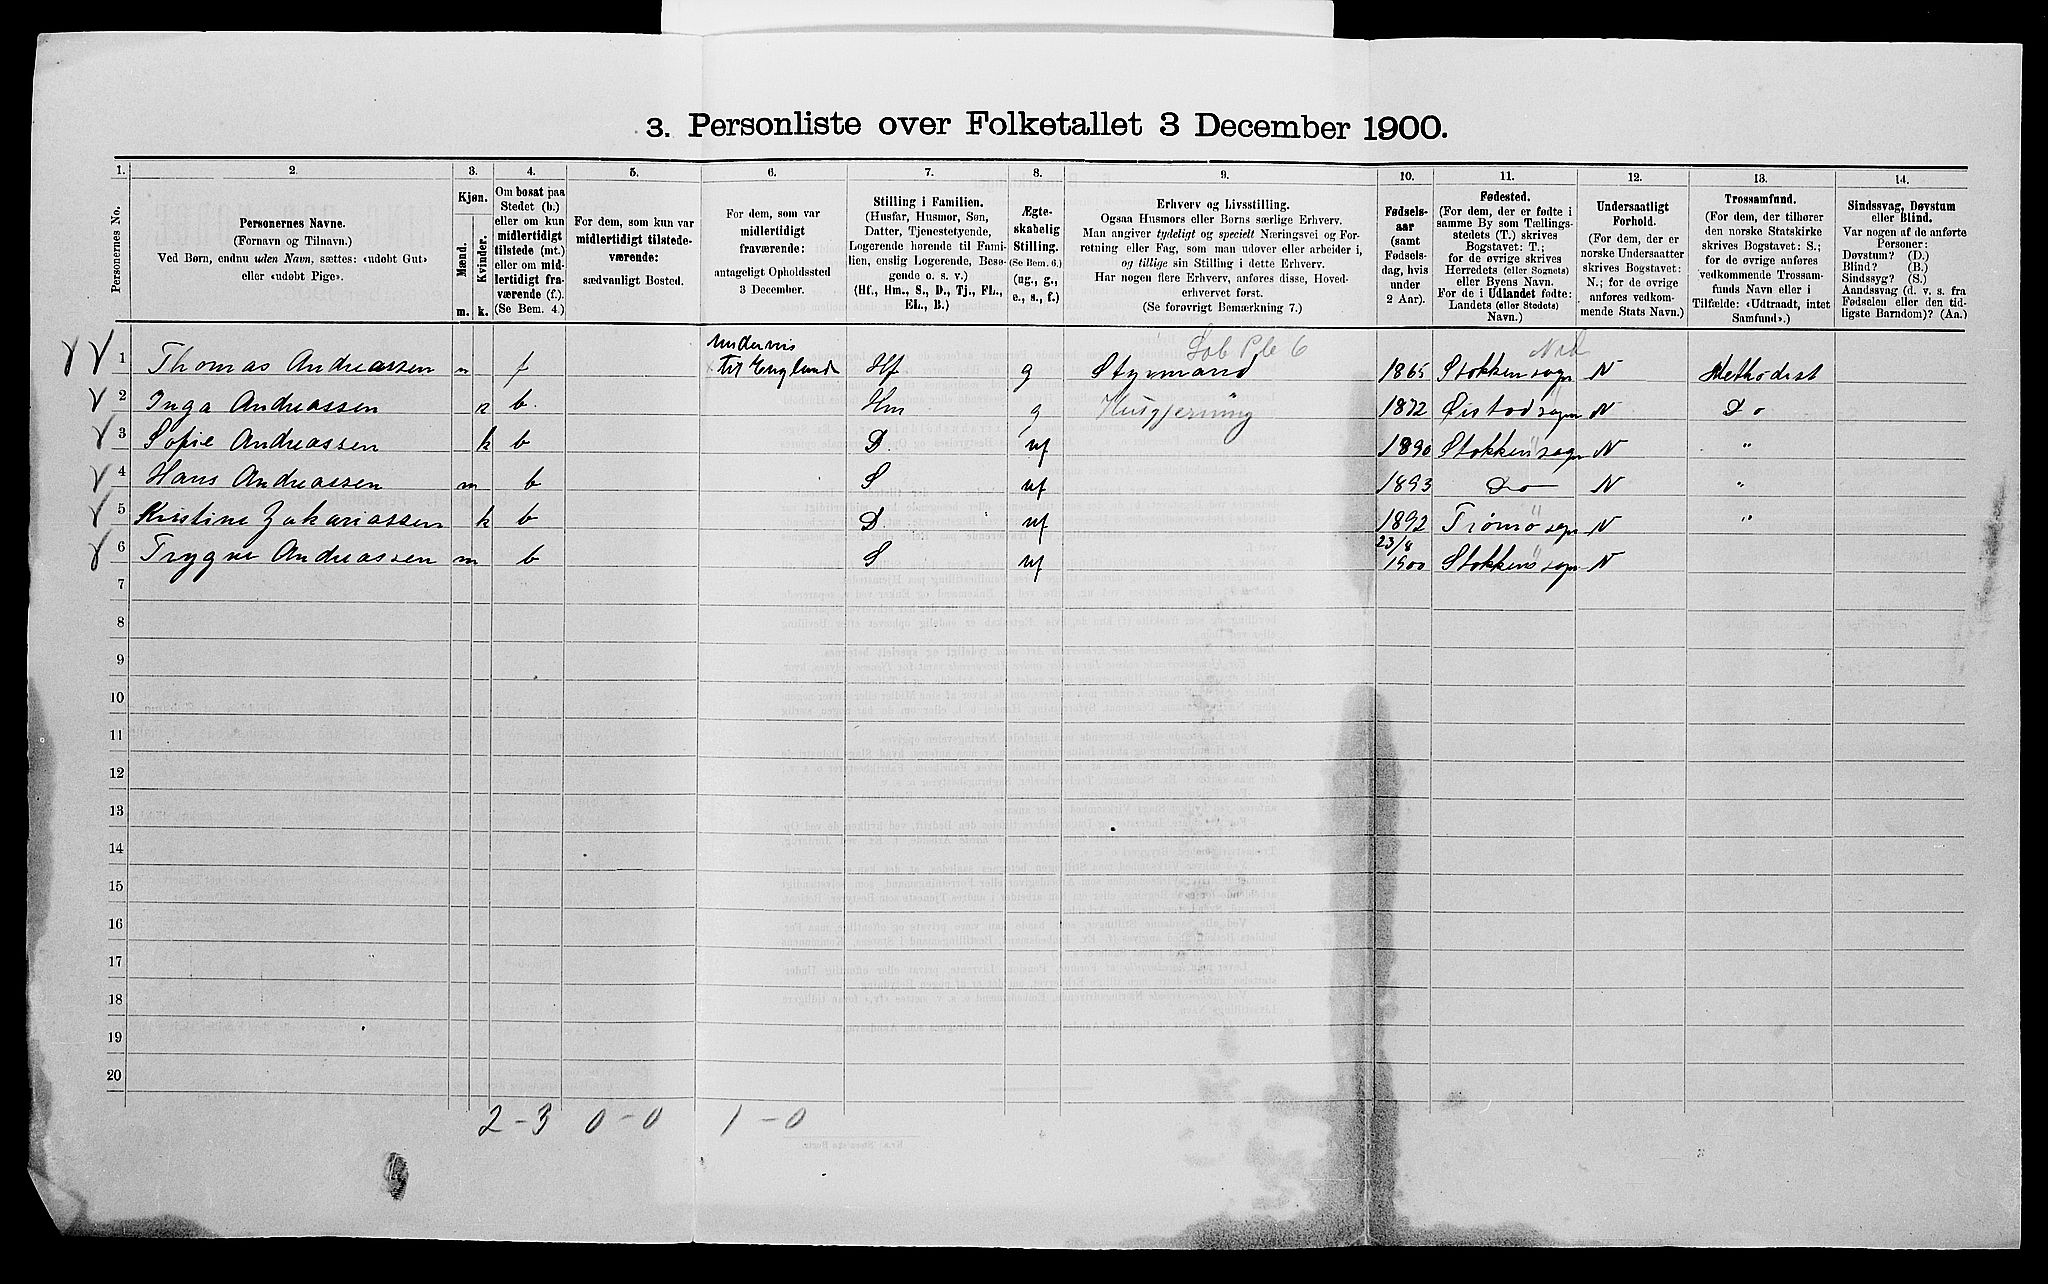 3. Personliste over Folketallet 3 December 1900.
1. 2. 3. 4. 5. 6. 7. 8. 9. 10. 11. 12. 13. 14.
Personernes No.
Personernes Navne.
(Fornavn og Tilnavn.)
Ved Børn, endnu uden Navn, sættes: «udøbt Gut»
eller «udøbt Pige».
Kjøn.
Mænd. Kvinder.
m. k.
Om bosat paa
Stedet (b.)
eller om kun
midlertidigt
tilstede (mt.)
eller om mid-
lertidigt fra-
værende (f.).
(Se Bem. 4.)
For dem, som kun var
midlertidigt tilstede-
værende:
sædvanligt Bosted.
For dem, som var
midlertidigt
fraværende:
antageligt Opholdssted
3 December.
Stilling i Familien.
(Husfar, Husmor, Søn,
Datter, Tjenestetyende,
Logerende hørende til Fami-
lien, enslig Logerende, Besø-
gende o. s. v.)
(Hf., Hm., S., D., Tj., FL.,
EL., B.)
Ægte-
skabelig
Stilling.
(Se Bem. 6.)
(ug., g.,
e., s., f.)
Erhverv og Livsstilling.
Ogsaa Husmors eller Børns særlige Erhverv.
Man angiver tydeligt og specielt Næringsvei og For-
retning eller Fag, som man udøver eller arbeider i,
og tillige sin Stilling i dette Erhverv.
Har nogen flere Erhverv, anføres disse, Hoved-
erhvervet først.
(Se forøvrigt Bemærkning 7.)
Fødsels-
aar
(samt
Fødsels-
dag, hvis
under
2 Aar).
Fødested.
(For dem, der er fødte i
samme By som Tællings-
stedets (T.) skrives
Bogstavet: T.;
for de øvrige skrives
Herredets (eller Sognets)
eller Byens Navn.
For de i Udlandet fødte:
Landets (eller Stedets)
Navn.)
Undersaatligt
Forhold.
(For dem, der er
norske Undersaatter
skrives Bogstavet:
N.; for de øvrige
anføres vedkom-
mende Stats Navn.)
Trossamfund.
(For dem, der tilhører
den norske Statskirke
skrives Bogstavet: S.;
for de øvrige anføres
vedkommende Trossam-
funds Navn eller i
Tilfælde: «Udtraadt, intet
Samfund».)
Sindssvag, Døvstum
eller Blind.
Var nogen af de anførte
Personer:
Døvstum? (D.)
Blind? (B.)
Sindssyg? (S.)
Aandssvag (d. v. s. fra
Fødselen eller den tid-
ligste Barndom)? (Aa.)
1 Thomas Andreassen m f underveis til England Hf g Styrmand 1865 Stokken sogn N Methodist
2 Inga Andreassen k b. Hm g Husgjerning 1872 Øistad sogn N Do
3 Sofie Andreassen k b D. uf 1890 Stokken sogn N "
4 Hans Andreassen m b S uf 1893 Do N "
5 Kristine Zakariassen k b D. uf 1892 Tromø sogn N "
6 Trygve Andreassen m b S uf 23/8 1900 Stokken sogn N
7
8
9
10
11
12
13
14
15
16
17
18
19
20
2-3 0-0 1-0